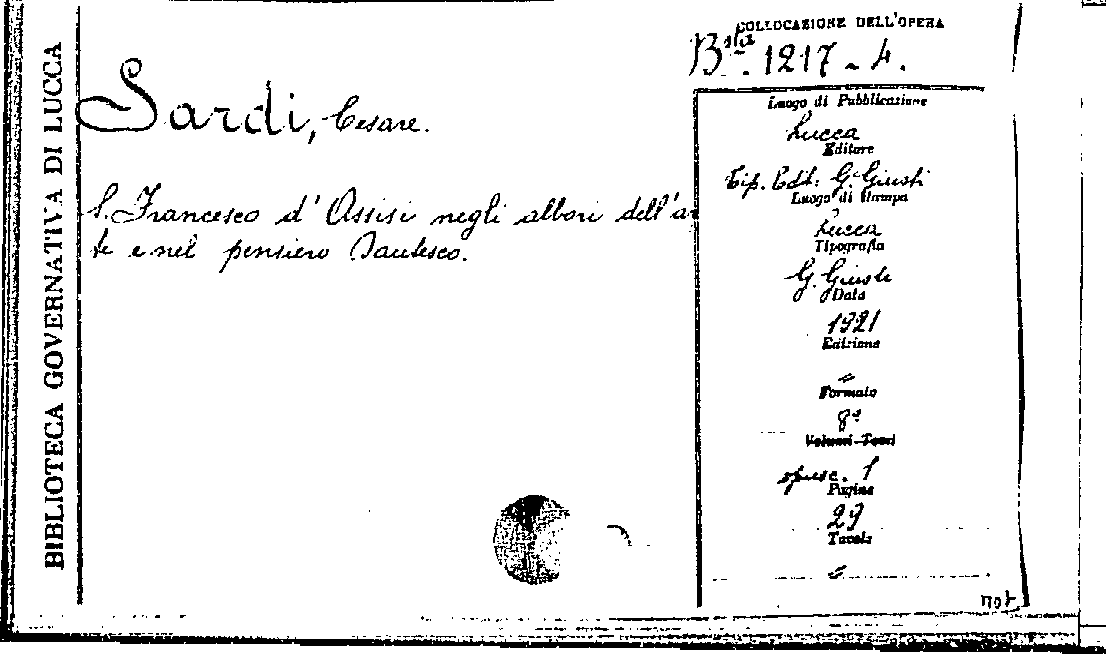 BIBLIOTECA GOVERNATIVA DI LUCCA
Sardi, Cesare.
S. Francesco d'Assisi negli albori dell'ar
te e nel pensiero Dantesco.
COLLOCAZIONE DELL'OPERA
Bta. 1217 - 4.
Luogo di Pubblicazione
Lucca
Editore
Tip. Edit: G. Giusti
Luogo di Stampa
Lucca
Tipografia
G. Giusti
Data
1921
Edizione
Formato
8º
Volumi-Tomi
opusc. 1
Pagine
29
Tavole